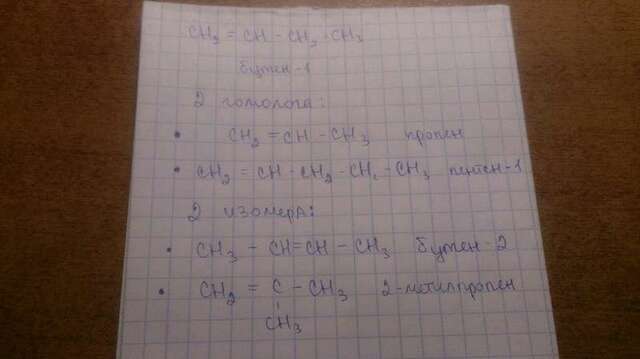 CH₃ = CH - CH₂ - CH₃
бутен-1
2 гомолога:
• CH₂ = CH - CH₃ пропен
• CH₂ = CH - CH₂ - CH₂ - CH₃ пентен-1
2 изомера:
• CH₃ - CH=CH - CH₃ бутен-2
• CH₂ = C - CH₃ 2-метилпропен
CH₃